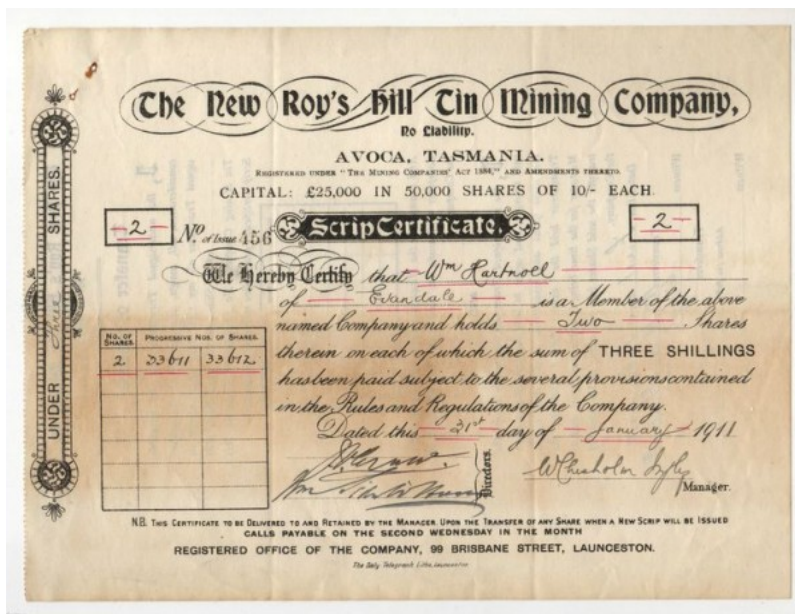 The New Roy's Hill Tin Mining Company,
No Liability.
AVOCA, TASMANIA.
REGISTERED UNDER "THE MINING COMPANIES' ACT 1884," AND AMENDMENTS THERETO.
CAPITAL: £25,000 IN 50,000 SHARES OF 10/- EACH.
-2- No of Issue 456 Scrip Certificate. -2-
We Hereby Certify that Wm Hartnoll
of Evandale is a Member of the above
named Company and holds Two Shares
therein on each of which the sum of THREE SHILLINGS
has been paid subject to the several provisions contained
in the Rules and Regulations of the Company.
Dated this 31st day of January 1911
UNDER Three SHARES.
NO. OF SHARES. PROGRESSIVE NOS. OF SHARES.
2 33611 33612
Directors.
Manager.
N.B. THIS CERTIFICATE TO BE DELIVERED TO AND RETAINED BY THE MANAGER UPON THE TRANSFER OF ANY SHARE WHEN A NEW SCRIP WILL BE ISSUED
CALLS PAYABLE ON THE SECOND WEDNESDAY IN THE MONTH
REGISTERED OFFICE OF THE COMPANY, 99 BRISBANE STREET, LAUNCESTON.
The Daily Telegraph Litho. Launceston